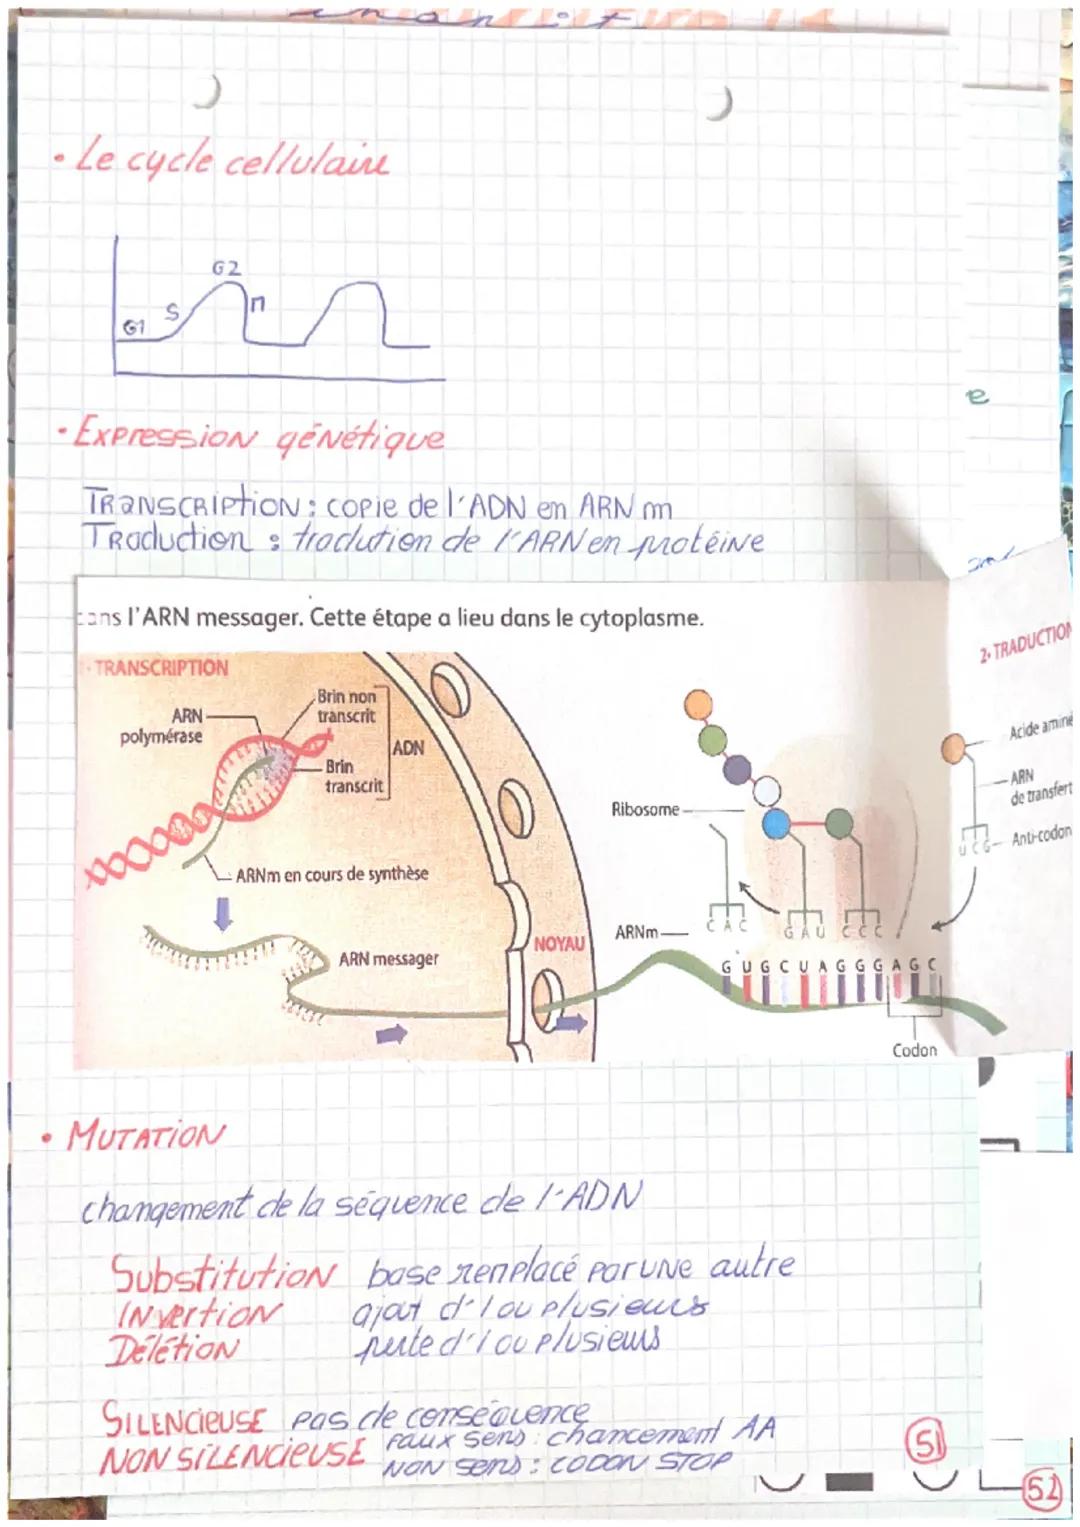 • Le cycle cellulaire
G2
S
M
G1
e
• Expression génétique
Transcription : copie de l'ADN en ARN m
Traduction : tradution de l'ARN en protéine
dans l'ARN messager. Cette étape a lieu dans le cytoplasme.
TRANSCRIPTION
2• TRADUCTION
ARN
polymérase
Brin non
transcrit
ADN
Brin
transcrit
ARNm en cours de synthèse
ARN messager
NOYAU
Ribosome
ARNm
Acide aminé
ARN
de transfert
U C G
Anti-codon
C A C
G A U
C C C
G U G C U A G G G A G C
Codon
• MUTATION
changement de la séquence de l'ADN
Substitution base renplacé par une autre
Invertion ajout d'1 ou plusieurs
Délétion perte d'1 ou plusieurs
SILENCIEUSE pas de conséquence
NON SILENCIEUSE faux sens : chancement AA
NON sens : CODON STOP
51
52